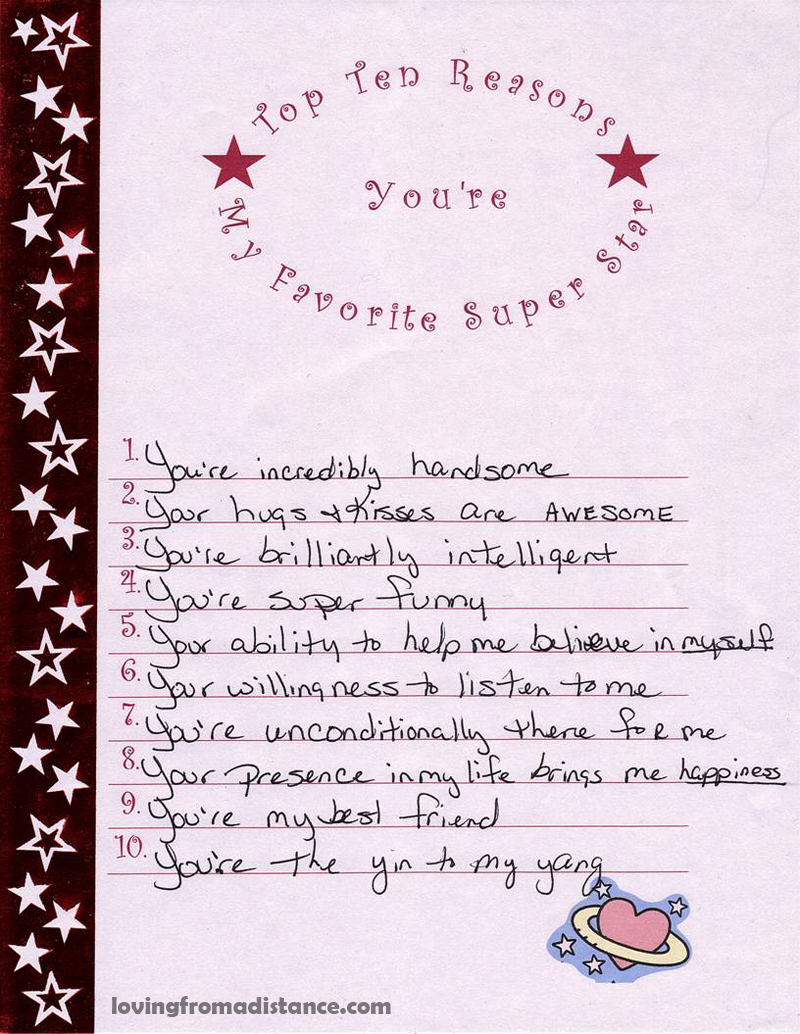 Top Ten Reasons
You're
My Favorite Super Star
1. You're incredibly handsome
2. Your hugs + Kisses are AWESOME
3. You're brilliantly intelligent
4. You're super funny
5. Your ability to help me believe in myself
6. Your willingness to listen to me
7. You're unconditionally there foR me
8. Your presence in my life brings me happiness
9. You're my best friend
10. You're the yin to my yang
lovingfromadistance.com